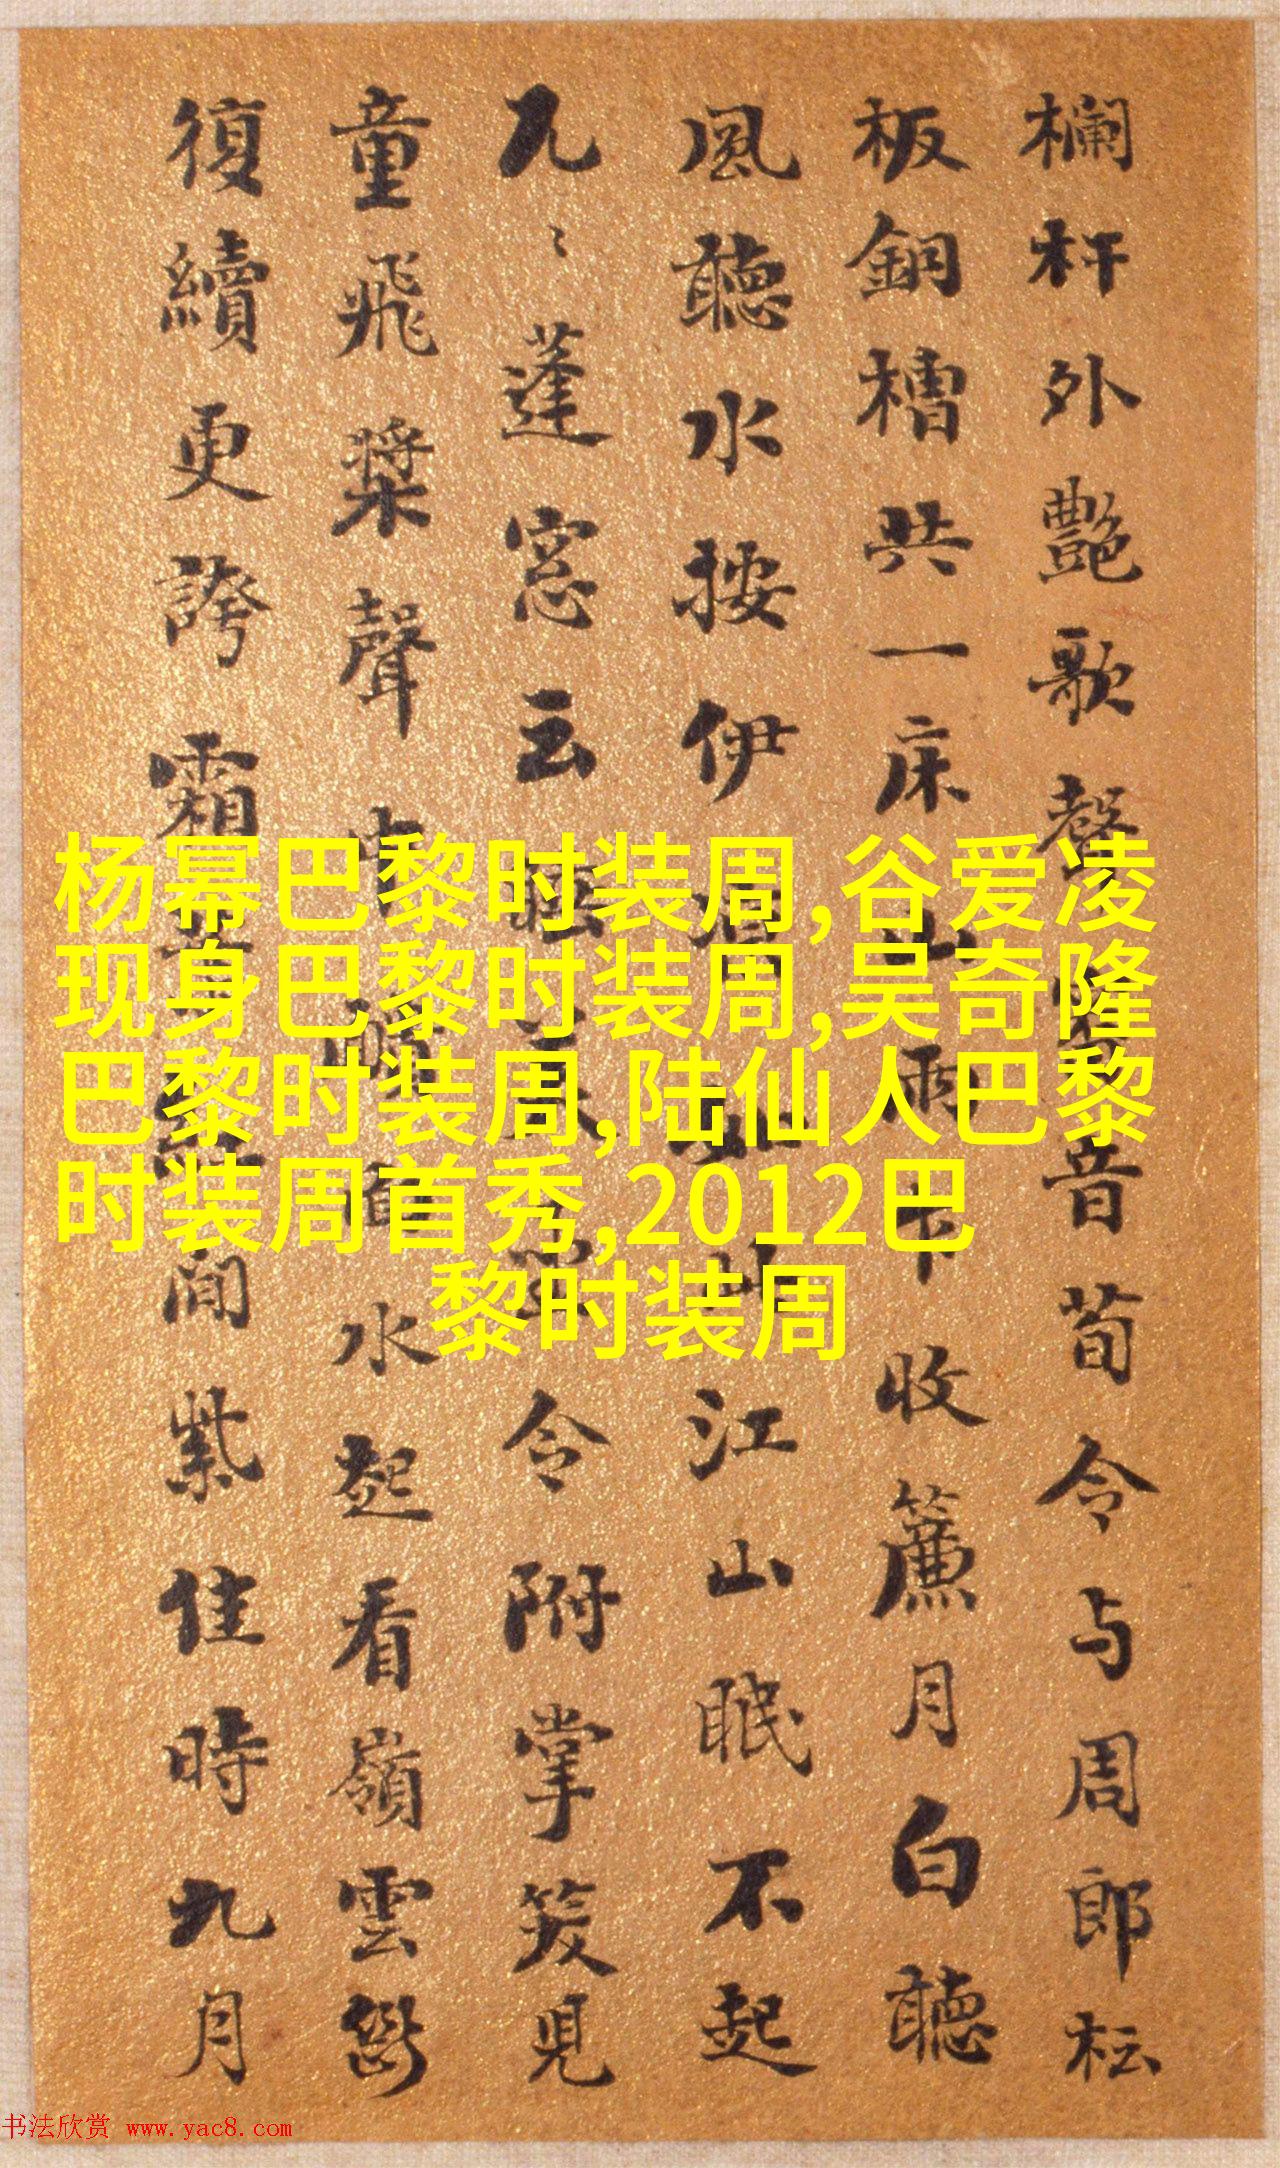 欄杆外艷歌聲音荀令与周郎枟
板銅槽共一床山雨下收簾月白聽
風聽水按伊江山眠不起
九〻蓬窓云令附掌笑見
童飛槳聲中水起看嶺雲
復續更誇霜間紫佳時九月
杨幂巴黎时装周,谷爱凌
现身巴黎时装周,吴奇隆
巴黎时装周,陆仙人巴黎
时装周首秀,2012巴
黎时装周
书法欣赏 www.yac8.com